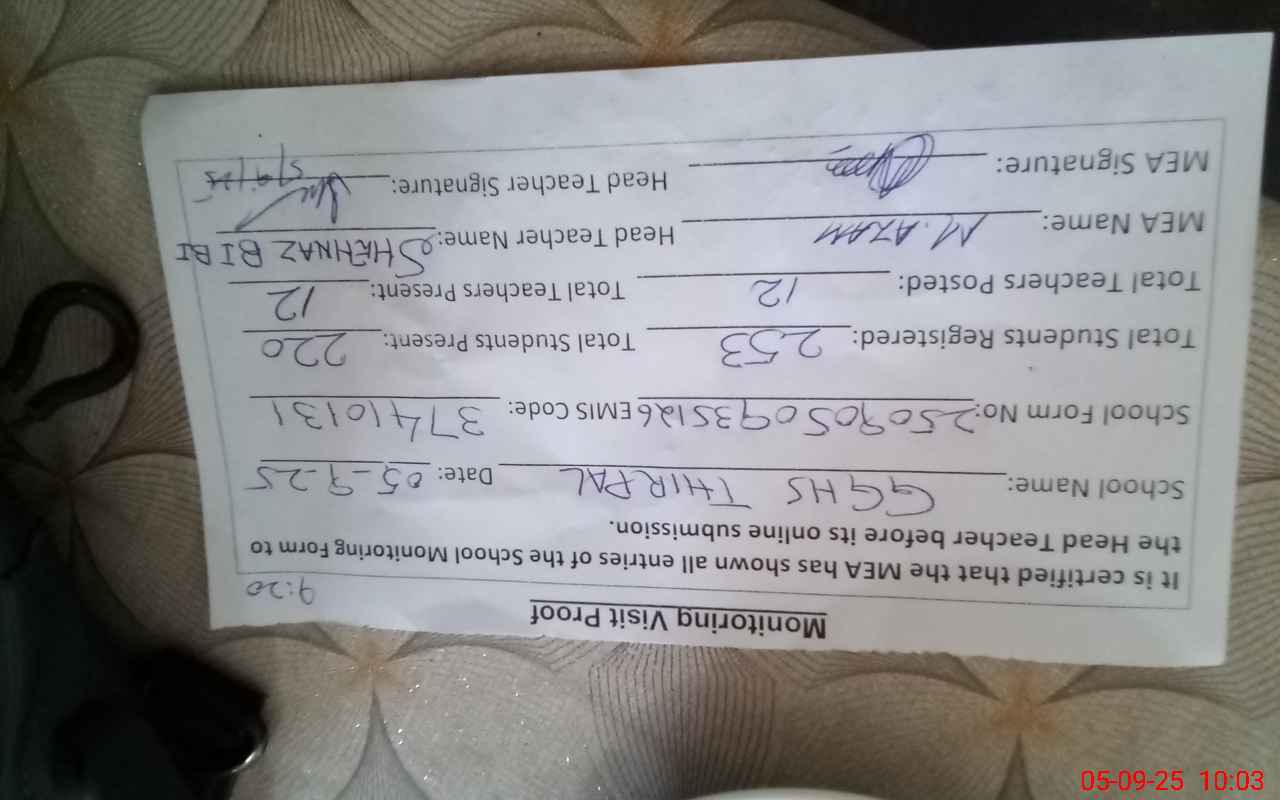 Monitoring Visit Proof
9:20
It is certified that the MEA has shown all entries of the School Monitoring Form to
the Head Teacher before its online submission.
School Name: GGHS THIRPAL Date: 05-9-25
School Form No: 250905093S126 EMIS Code: 37410131
Total Students Registered: 253 Total Students Present: 220
Total Teachers Posted: 12 Total Teachers Present: 12
MEA Name: M. AZAM Head Teacher Name: SHEHNAZ BIBI
MEA Signature: Head Teacher Signature: 5/9/25
05-09-25 10:03